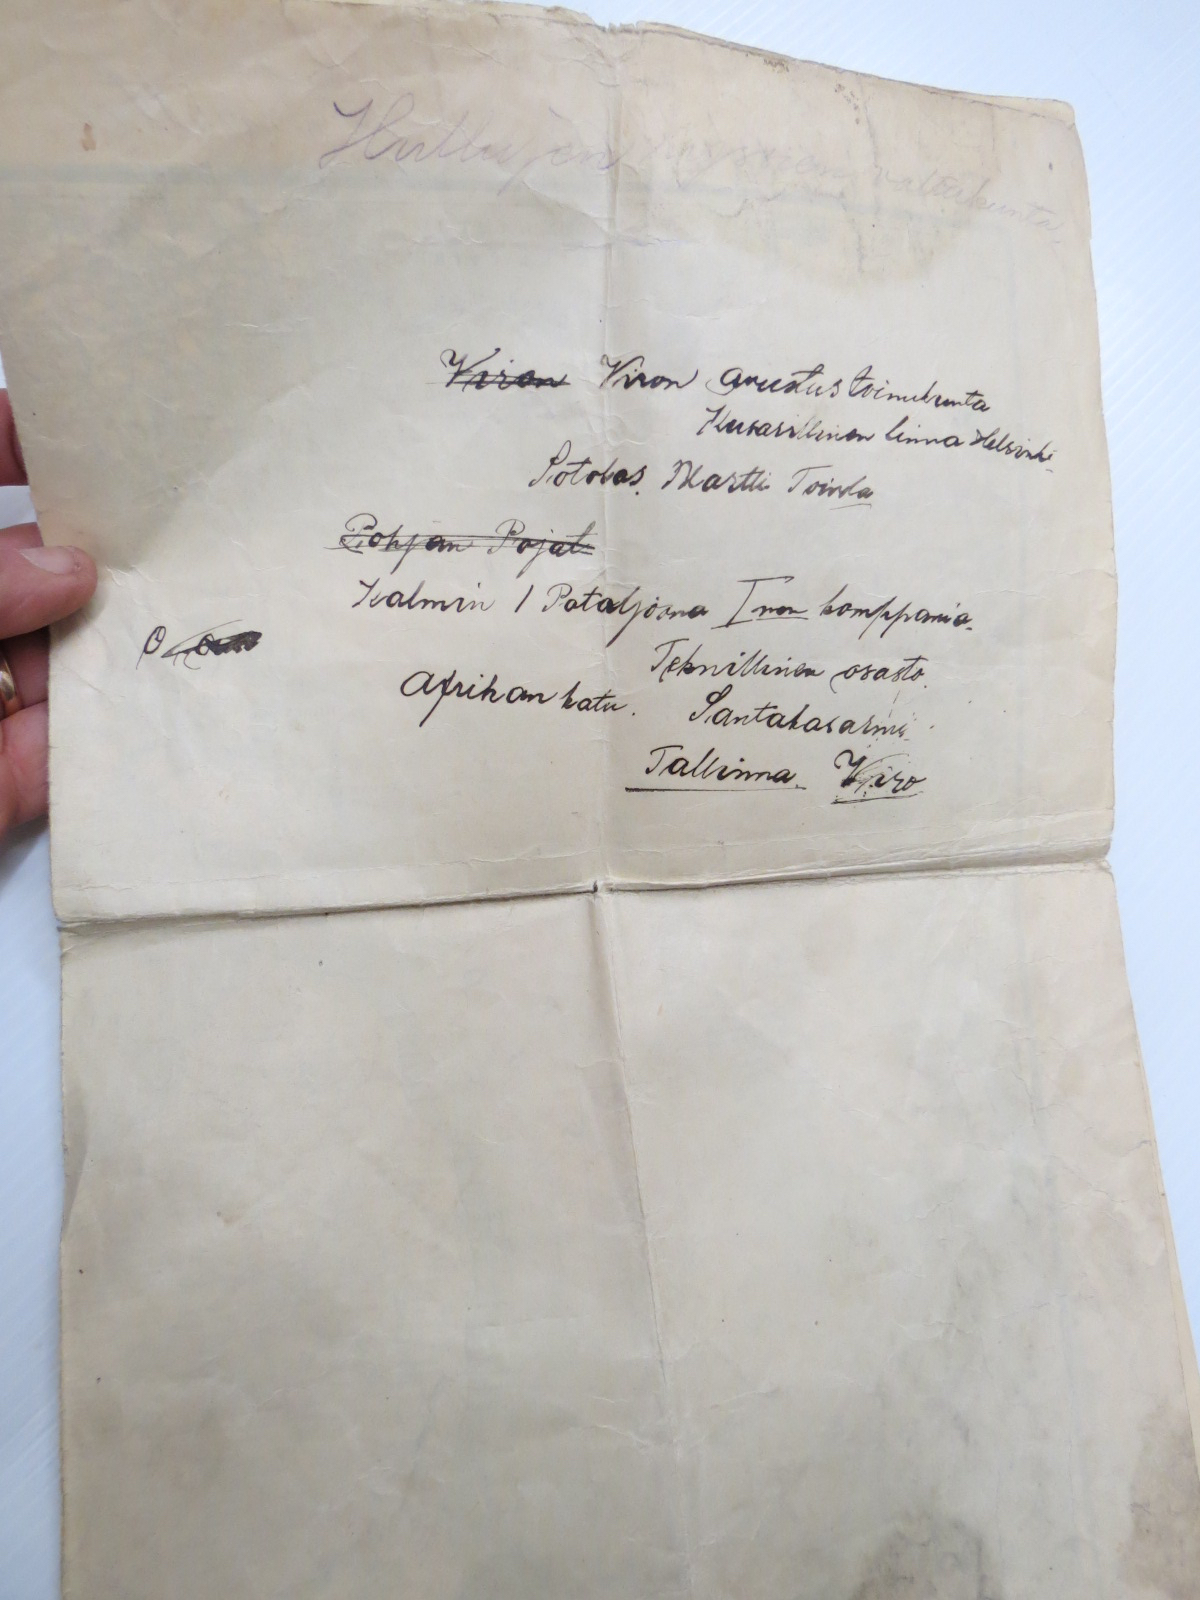 Hullujen ryssien valtakunta.
Viron Viron avustus toimikunta
Kusasillinen linna Helsinki
Sotolas. Martti Toivola
Pohjan Pojat
Kalmin 1 Pataljoona I nen komppania.
O
Teknillinen osasto.
Afrikan katu. Santakasarmi
Tallinna. Viro